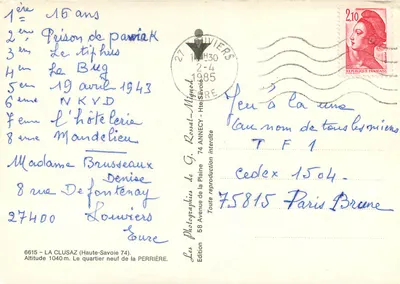 1ère 16 ans
2em Prison de pawiak
3em Le tiphus
4em Le Bug
5em 19 avril 1943
6ème NKVD
7ème l'hôtelerie
8ème Mandelieu
Madame Brusseaux
Denise
8 rue Defontenay
27400 Louviers
Eure
6615 - LA CLUSAZ (Haute-Savoie 74).
Altitude 1040 m. Le quartier neuf de la PERRIÈRE.
Les Photographies de G.
Edition 58 Avenue de la Plaine 74 ANNECY - Hte-Savoie
Toute reproduction interdite
27 LOUVIERS
2-4
1985
EURE
2,10
Jeu à la une
au nom de tous les miens
TF1
cedex 1504.
75815 Paris Brune